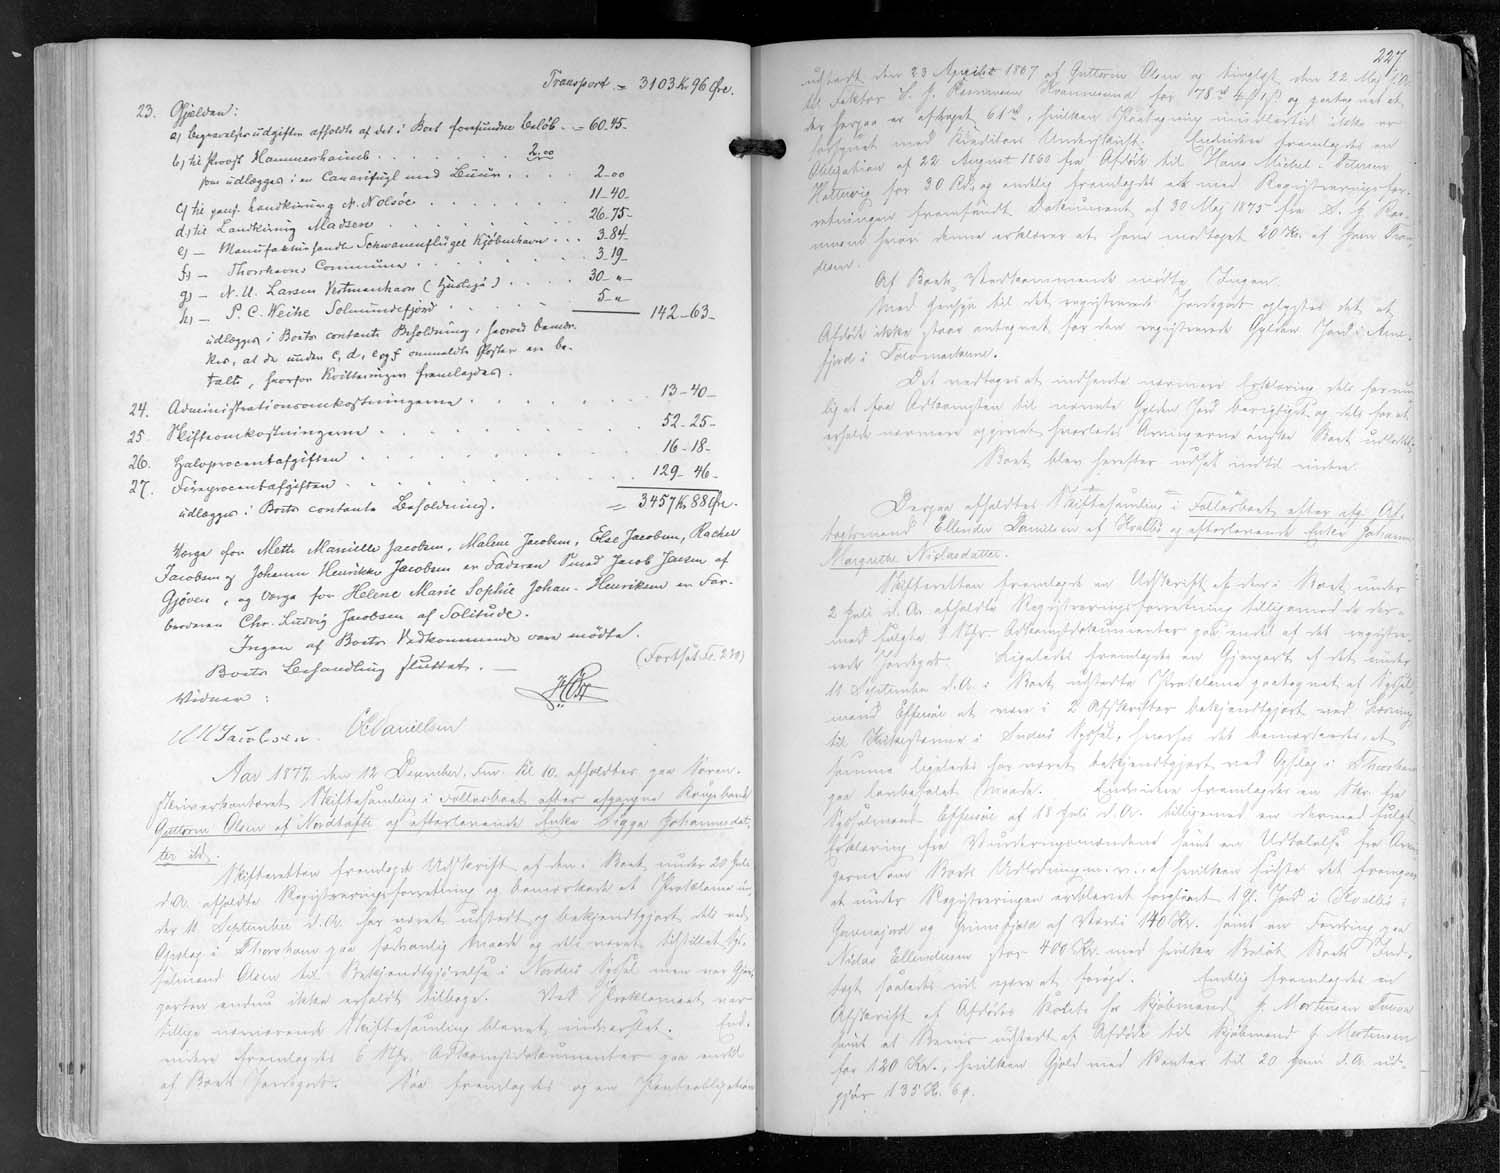 Transport = 3103 Kr 96 Øre.
23. Gjælden:
a) begravelsesudgiften afholdte af det i Boet forefundne beløb. = 60.45-
b) til Provst Hammershaimb . . . . . . 2.00
som udlægges i en Canarifugl med Buur. . . . 2-00
c) til pens. Landkirurg N. Nolsöe . . . . . . . 11-40
d) til Landkirurg Madsen . . . . . . . 26-75-
e) — Manufakturhandl. Schwannflügel Kjöbenhavn . . . 3-84
f) — Thorshavns Commune . . . . . . . 3.19
g) — N. U. Larsen Vestmanhavn (Husleje) . . . . 30-"-
h) — P. C. Weihe Solmundefjord . . . . . 5-" 142-63-
udlægges i Boets contante Beholdning, hvorved bemær-
kes, at de under c, d, e og f ommeldte Poster ere be-
talte, hvorfor Kvitteringer fremlagdes.
24. Administrationsomkostningerne . . . . . . 13-40-
25. Skifteomkostningerne . . . . . . . . 52-25-
26. Halvprocentafgiften . . . . . . . . 16-18-
27. Fireprocentafgiften . . . . . . . . 129-46-
udlægges i Boets contante Beholdning. = 3457 Kr 88 Øre.
Værge for Mette Marielle Jacobsen, Malene Jacobsen, Else Jacobsen, Rachel
Jacobsen og Johanne Henrikke Jacobsen er Faderen Smed Jacob Jansen af
Gjøven, og Værge for Helene Marie Sophie Johan- Henriksen er Far-
broderen Chr. Ludvig Jacobsen af Solitude.
Ingen af Boets Vedkommende vare mødte.
Boets Behandling sluttet. — (Fortsat Fo. 230)
Vidner:
Jacobsen. Danielsen
Aar 1877, den 12 December, Fm. Kl 10. afholdtes paa Soren-
skriverkontoret Skiftesamling i Fællesboet efter afgangne Kongsbonde
Guttorm Olsen af Nordtofte og efterlevende Enke Sigga Johannesdat-
ter ibd.
Skifteretten fremlagde Udskrift af den i Boet under 20 Juli
d. A. afholdte Registreringsforretning og bemærkede at Proklama un-
der 11 September d. A. har været udstedt og bekjendtgjort dels ved
Opslag i Thorshavn paa sædvanlig Maade og dels været tilstillet Sys-
selmand Olsen til Bekjendtgjørelse i Norderø Syssel men var Gjen-
parten endnu ikke erholdt tilbage. Ved Proklamaet var
tillige nærværende Skiftesamling blevet indvarslet. End-
videre fremlagdes 6 Nr. Adkomstdokumenter paa endel
af Boets Jordegods. Saa fremlagdes og en Panteobligation
227
udstedt den 23 April 1867 af Guttorm Olsen og tinglæst den 22 Maj
til Faktor S. J. Rasmussen Kvannesund for 78 Rd og paategnet at
der herpaa er afdraget 61 Rd, hvilken Paategning imidlertid ikke er
forsynet med Kreditors Underskrift. Endvidere fremlagdes en
Obligation af 22 August 1860 fra Afdøde til Hans Michel i Petersen
Hattervig for 30 Rd, og endelig fremlagdes et med Registreringsfor-
retningen fremsendt Dokument af 30 Maj 1875 fra S. J. Ras-
mussen hvor denne erklærer at have modtaget 20 Kr. af
Af Boets Vedkommende mødte Ingen.
Med Hensyn til det registrerede Jordegods oplystes det at
Afdøde ikke staar antegnet for den registrerede Gylden Jord i Arne-
fjord i
Det vedtoges at indhente nærmere Erklæring dels forsaa-
vidt Adkomsten til nævnte Gylden Jord berigtiget og dels for at
erholde nærmere opgivet hvorledes Arvingerne ønske Boet udloddet.
Boet blev herefter udsat indtil videre.
Derpaa afholdtes Skiftesamling i Fællesboet efter afg. Af-
togsmand Ellendur Danielsen af Kvalbø og efterlevende Enke Johanne
Margrethe Niclasdatter.
Skifteretten fremlagde en Udskrift af den i Boet under
2 Juli d. A. afholdte Registreringsforretning tilligemed de der-
med fulgte 9 Nr. Adkomstdokumenter paa endel af det registre-
rede Jordegods. Ligeledes fremlagdes en Gjenpart af det under
11 September d. A. i Boet udstedte Proklama paategnet af Syssel-
mand Effersøe at være i 2 Afskrifter bekjendtgjort ved Læsning
til Kirkestevne i Suderø Syssel, hvorhos det bemærkedes, at
samme ligeledes har været bekjendtgjort ved Opslag i Thorshavn
paa lovbefalet Maade. Endvidere fremlagdes en Skr. fra
Sysselmand Effersøe af 18 Juli d. A. tilligemed en dermed fulgt
Erklæring fra Vurderingsmændene samt en Udtalelse fra Arvin-
gerne om Boets Udlodning m. v., af hvilken sidste det fremgaar
at under Registreringen erklæret forglemt 1 Gl. Jord i Kvalbø i
af Værdi 140 Kr. samt en Fordring paa
Niclas Ellendursen stor 400 Kr. med hvilke Beløb Boets Ind-
tægt saaledes vil være at forøge. Endelig fremlagdes en
Afskrift af Afdødes Kontobog fra Kjøbmand J. Mortensen
samt et Bevis udstedt af Afdøde til Kjøbmand J. Mortensen
for 120 Kr., hvilken Gjæld med Renter til 20 Juni d. A. ud-
gjør 135 Kr. 6 ø.